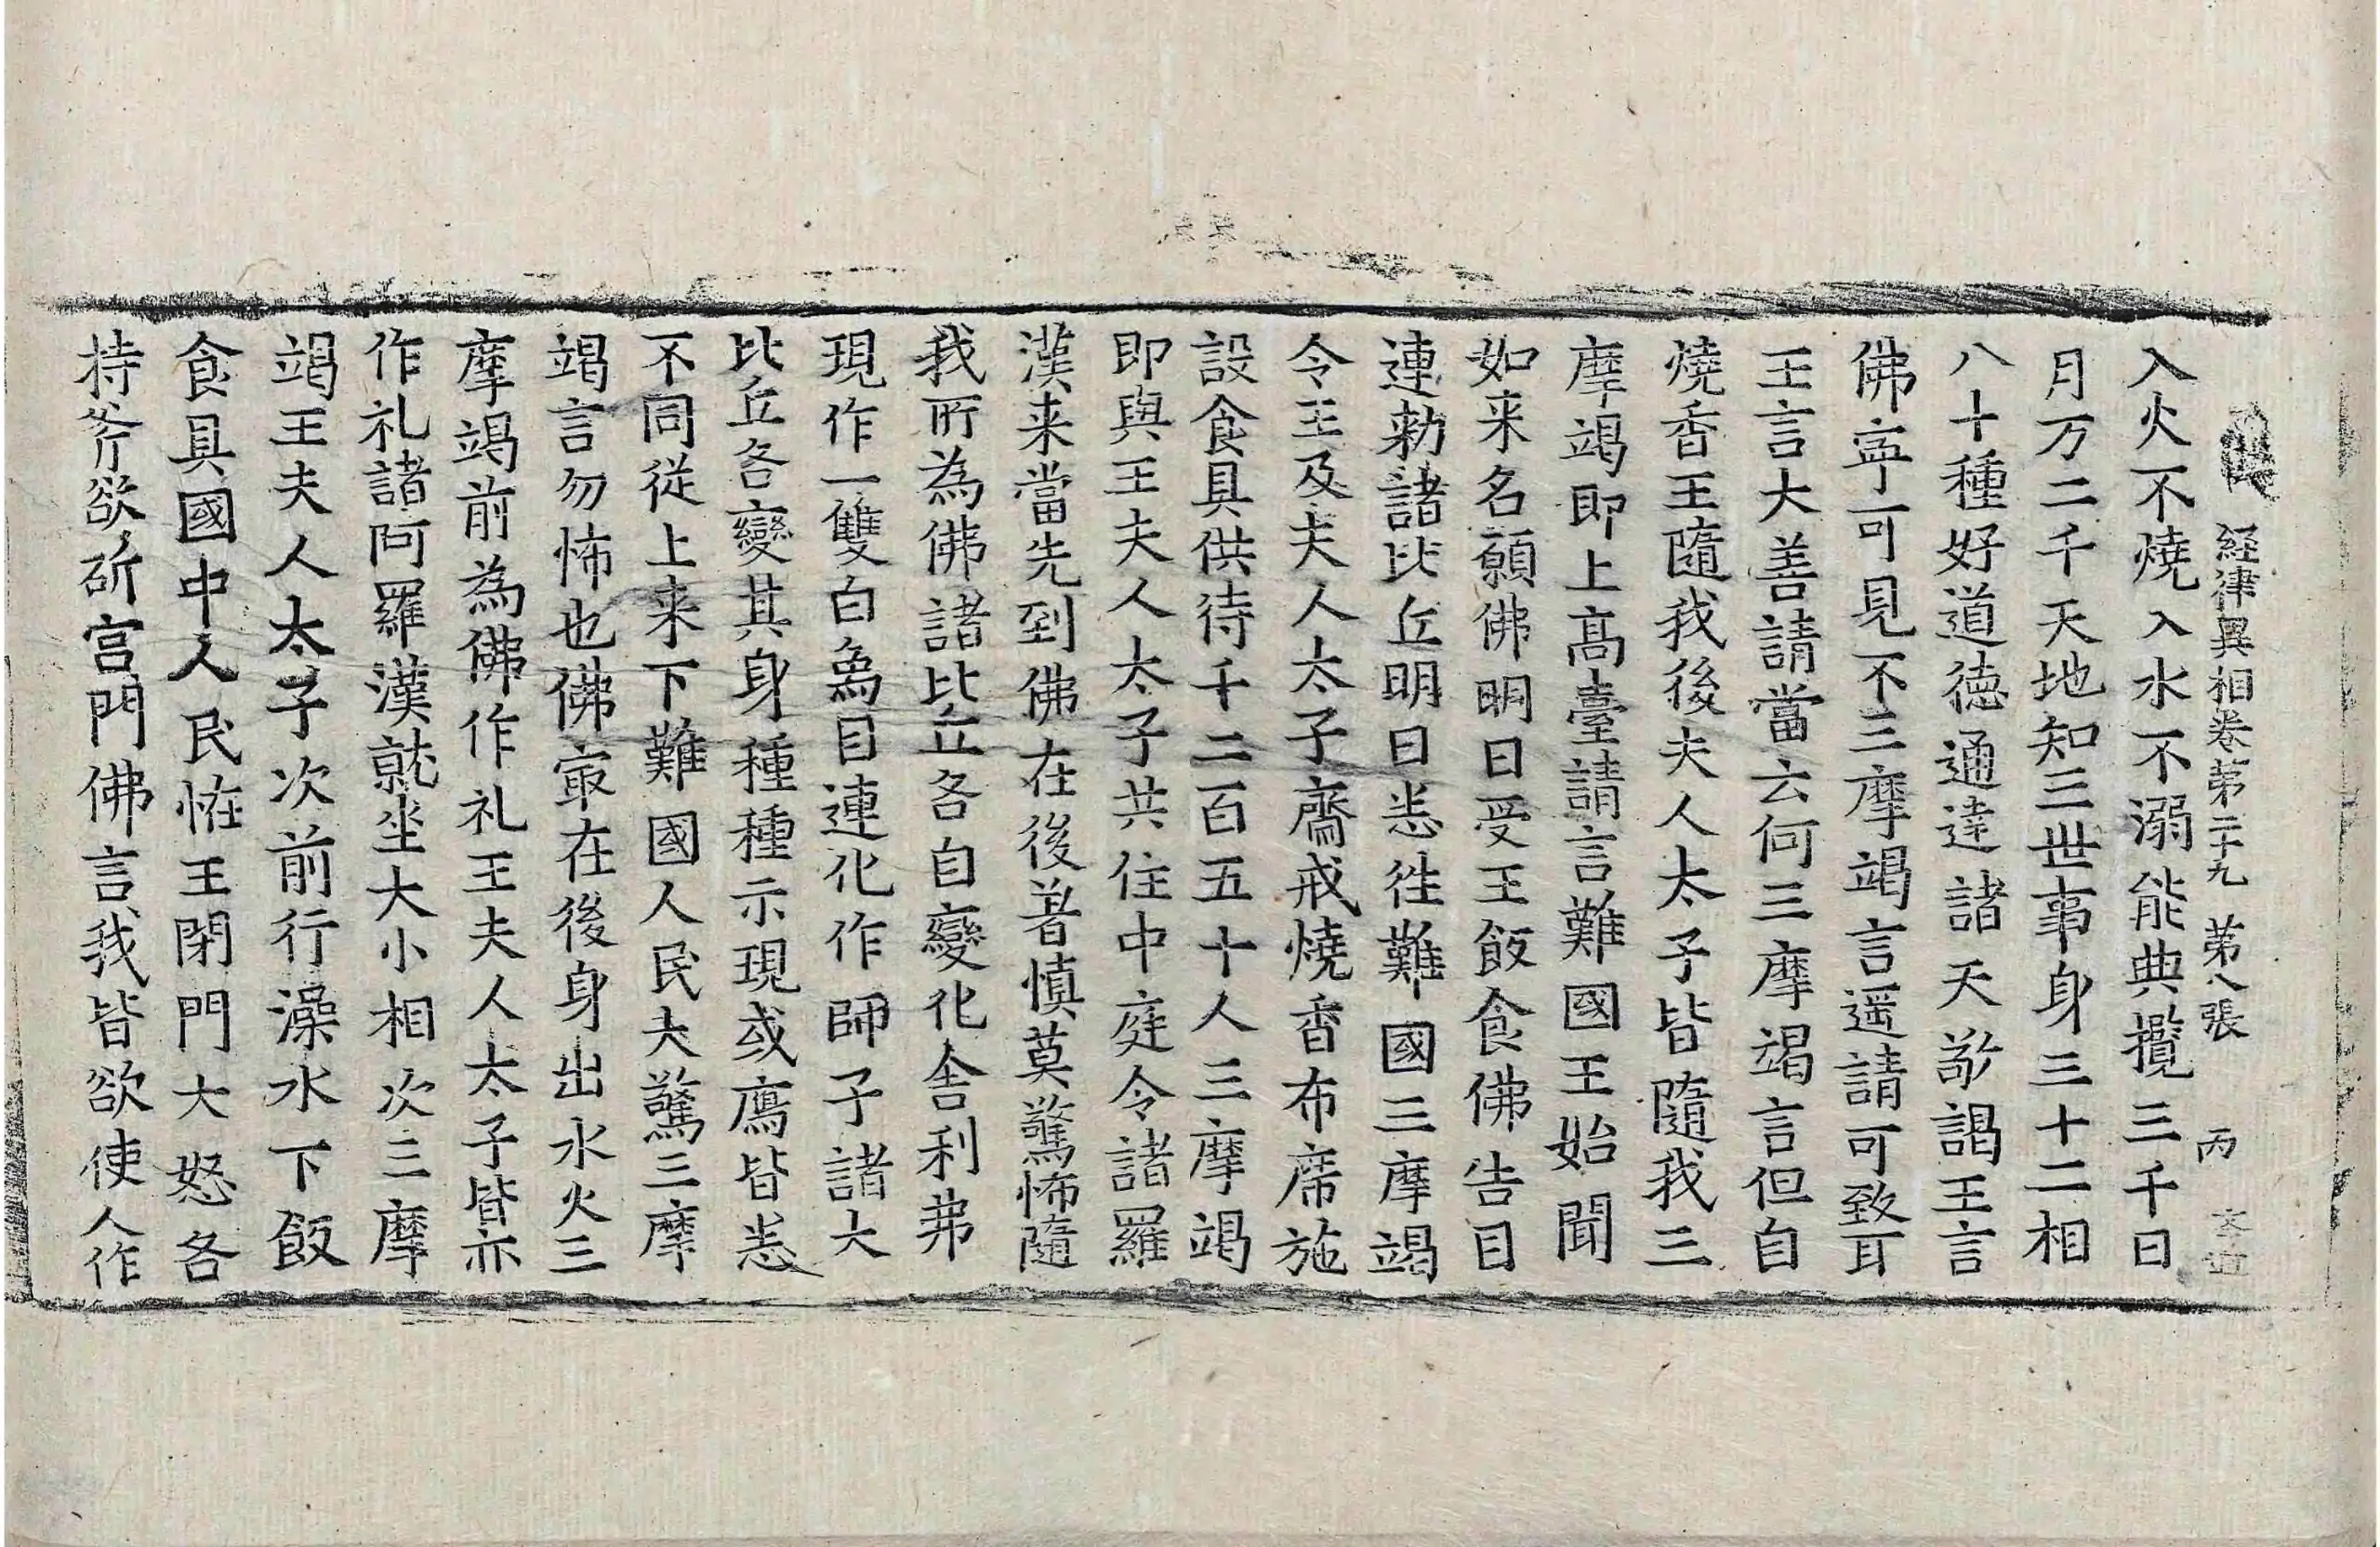 経律異相卷第二十九 第八張 丙
入火不燒入水不溺能典攬三千日
月万二千天地知三世事身三十二相
八十種好道德通達諸天敬謁王言
佛寧可見不三摩竭言遥請可致耳
王言大善請當云何三摩竭言但自
燒香王隨我後夫人太子皆隨我三
摩竭即上髙臺請言難國王始聞
如来名願佛明日受王飯食佛告目
連勑諸比丘明日悉徃難國三摩竭
令王及夫人太子齋戒燒香布席施
設食具供待千二百五十人三摩竭
即與王夫人太子共住中庭令諸羅
漢来當先到佛在後著慎莫驚怖隨
我所為佛諸比丘各自變化舍利弗
現作一雙白鳥目連化作師子諸大
比丘各變其身種種示現或鴈皆悉
不同從上来下難國人民大驚三摩
竭言勿怖也佛㝡在後身出水火三
摩竭前為佛作礼王夫人太子皆亦
作礼諸阿羅漢就坐大小相次三摩
竭王夫人太子次前行澡水下飯
食具國中人民恠王閇門大怒各
持斧欲斫宫門佛言我皆欲使人作